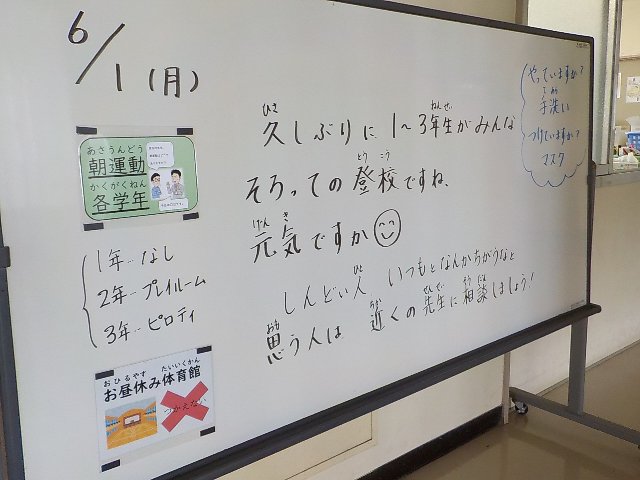 6/1(月)
あさうんどう
朝運動
かくがくねん
各学年
1年…なし
2年…プレイルーム
3年…ピロティ
おひるやす たいいくかん
お昼休み体育館
つかえない
ひさ ねんせい
久しぶりに 1〜3年生がみんな
とう こう
そろっての登校ですね、
げん き
元気ですか
ひと
しんどい人 いつもとなんかちがうなと
おも ちか せんせい そうだん
思う人は 近くの先生に相談しましょう!
やっていますか?
てあら
手洗い
つけていますか?
マスク